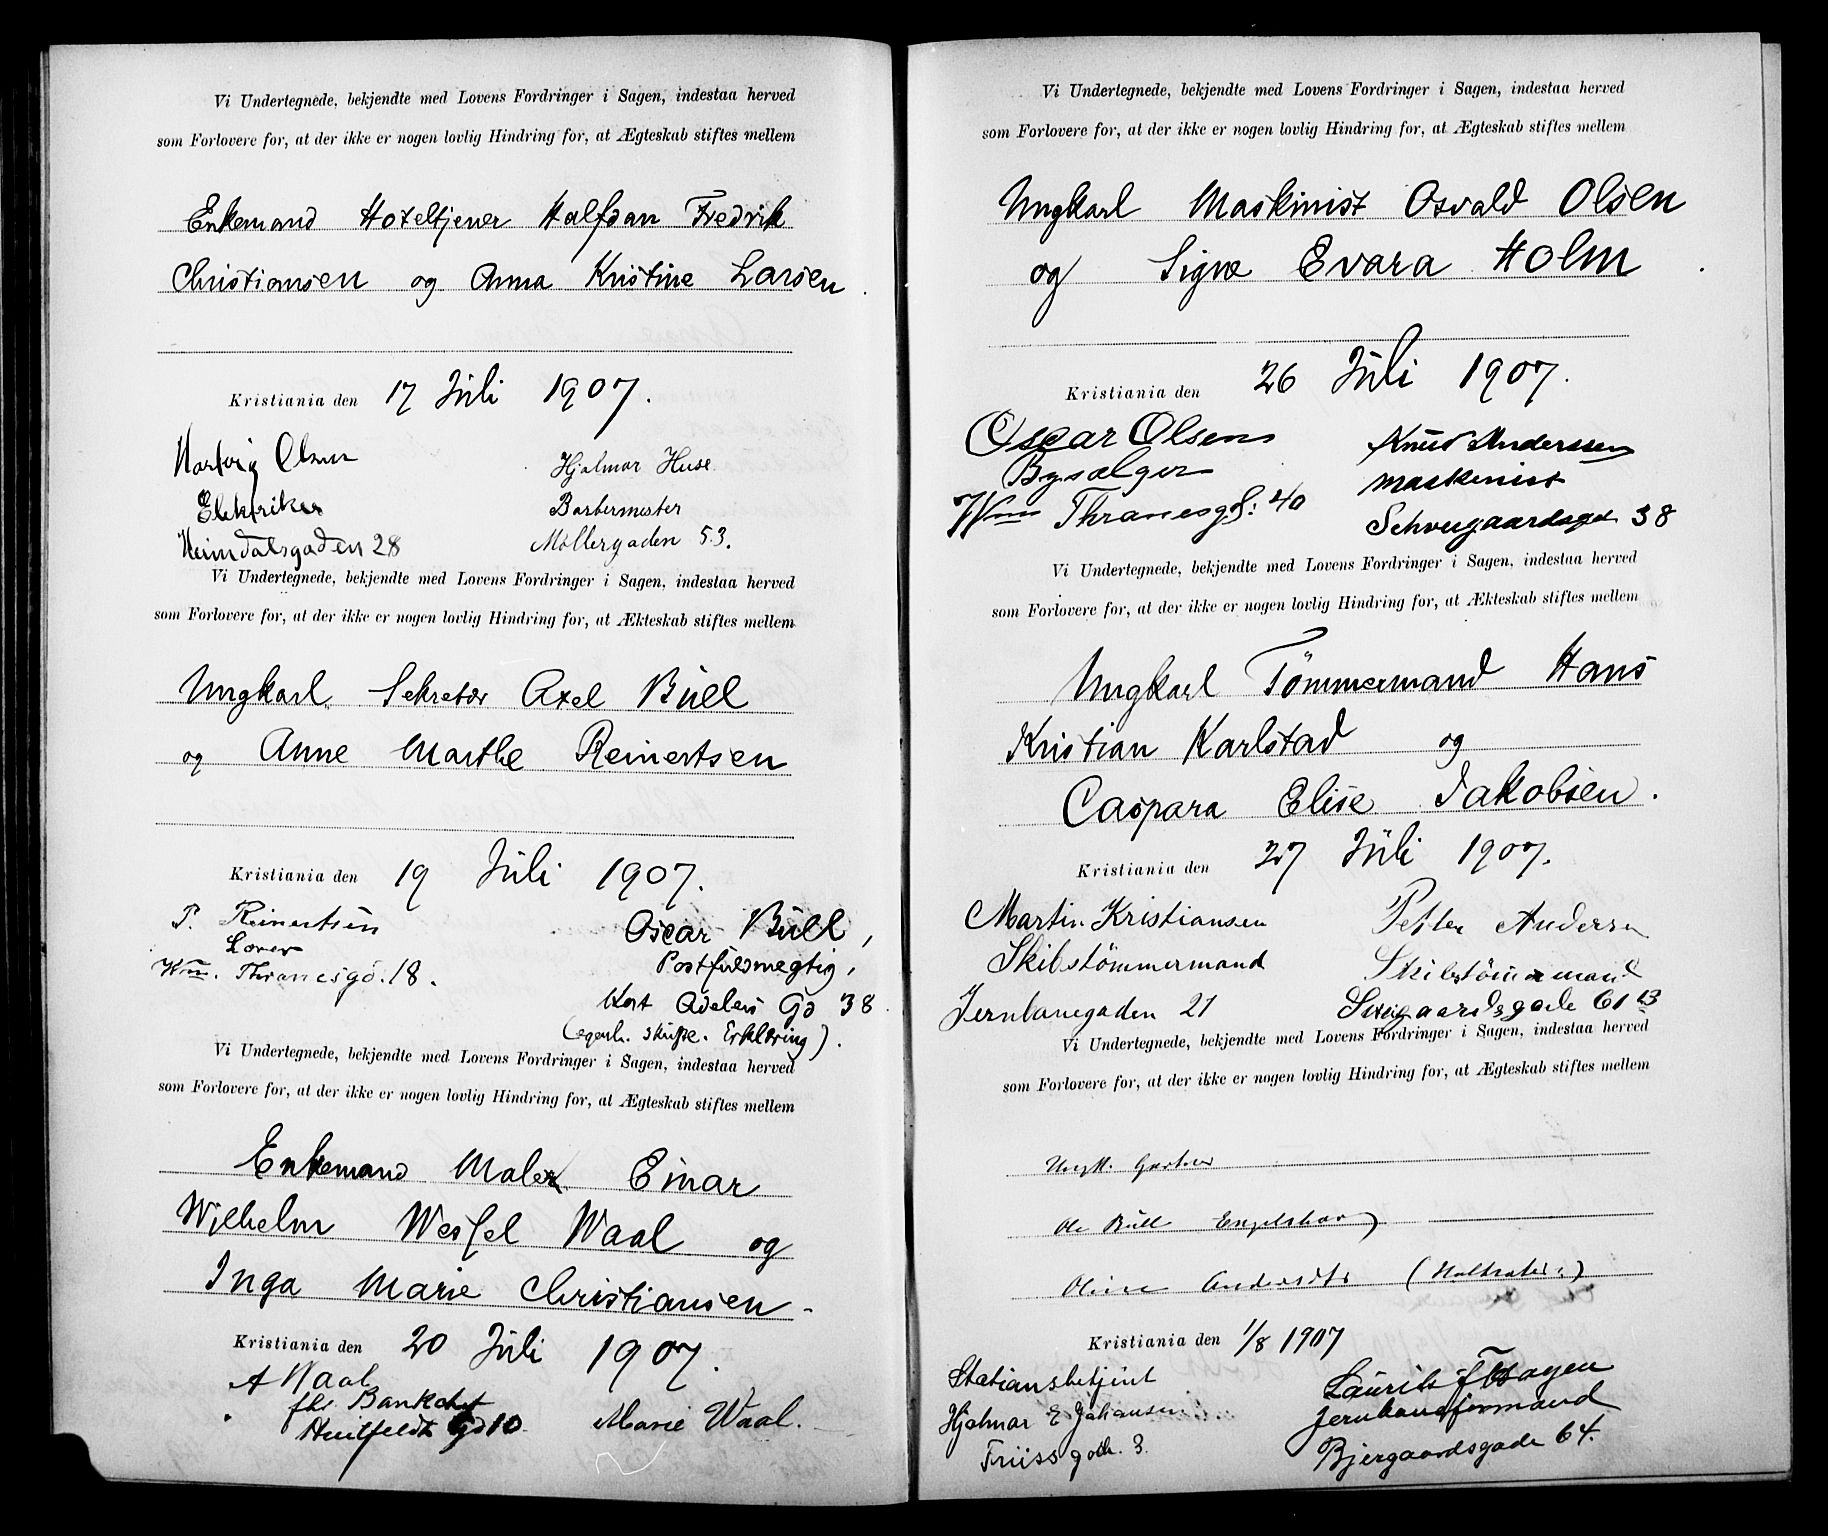 Vi Undertegnede, bekjendte med Lovens Fordringer i Sagen, indestaa herved
som Forlovere for, at der ikke er nogen lovlig Hindring for, at Ægteskab stiftes mellem
Enkemand Hoteltjener Halfdan Fredrik
Christiansen og Anna Kristine Larsen.
Kristiania den 17 Juli 1907.
Hartvig Olsen
Elektriker
Heimdalsgaden 28
Hjalmar Huse
Barbermester
Møllergaden 53.
Vi Undertegnede, bekjendte med Lovens Fordringer i Sagen, indestaa herved
som Forlovere for, at der ikke er nogen lovlig Hindring for, at Ækteskab stiftes mellem
Ungkarl Sekretær Axel Bull
og Anne Marthe Reinertsen
Kristiania den 19 Juli 1907.
P. Reinertsen
Wm. Thranesgd. 18.
Oscar Bull,
Postfuldmegtig,
Kort Adelers Gd 38.
(egenh. skriftl. Erklæring).
Vi Undertegnede, bekjendte med Lovens Fordringer i Sagen, indestaa herved
som Forlovere for, at der ikke er nogen lovlig Hindring for, at Ægteskab stiftes mellem
Enkemand Maler Einar
Wilhelm Wessel Waal og
Inga Marie Christiansen.
Kristiania den 20 Juli 1907.
A Waal
fhv. Bankchef
Huitfeldts Gd 10
Marie Waal.
Vi Undertegnede, bekjendte med Lovens Fordringer i Sagen, indestaa herved
som Forlovere for, at der ikke er nogen lovlig Hindring for, at Ægteskab stiftes mellem
Ungkarl Maskinist Osvald Olsen
og Signe Evara Holm.
Kristiania den 26 Juli 1907.
Oscar Olsen
Bysælger
Wm Thranesgd: 40
Knud Anderssen
maskinist
Schweigaardsgd 38
Vi Undertegnede, bekjendte med Lovens Fordringer i Sagen, indestaa herved
som Forlovere for, at der ikke er nogen lovlig Hindring for, at Ækteskab stiftes mellem
Ungkarl Tömmermand Hans
Kristian Karlstad og
Caspara Elise Jakobsen.
Kristiania den 27 Juli 1907.
Martin Kristiansen
Skibstömmermand
Jernbanegaden 21
Petter Andersen
Skibstömmermand
Sveigaardsgade 61 B
Vi Undertegnede, bekjendte med Lovens Fordringer i Sagen, indestaa herved
som Forlovere for, at der ikke er nogen lovlig Hindring for, at Ægteskab stiftes mellem
Ungk. Gartner
Ole Bull
Kristiania den 1/8 1907
Stationsbetjent
Hjalmar E Johansen
Friisgade. 3.
Laurits
Jernbaneformand
Bjergaardsgade 64.